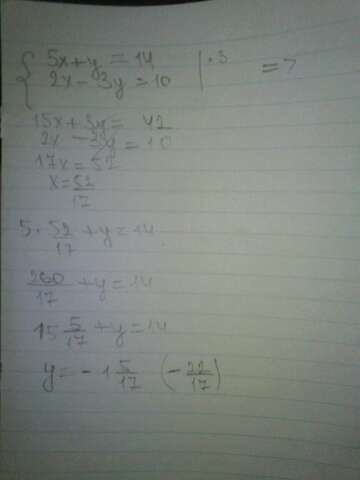 { 5x+y=14 | ·3 =>
2x-3y=10
15x+3y=42
2x-3y=10
17x=52
x=52/17
5·52/17+y=14
260/17+y=14
15 5/17+y=14
y=-1 5/17 (-22/17)